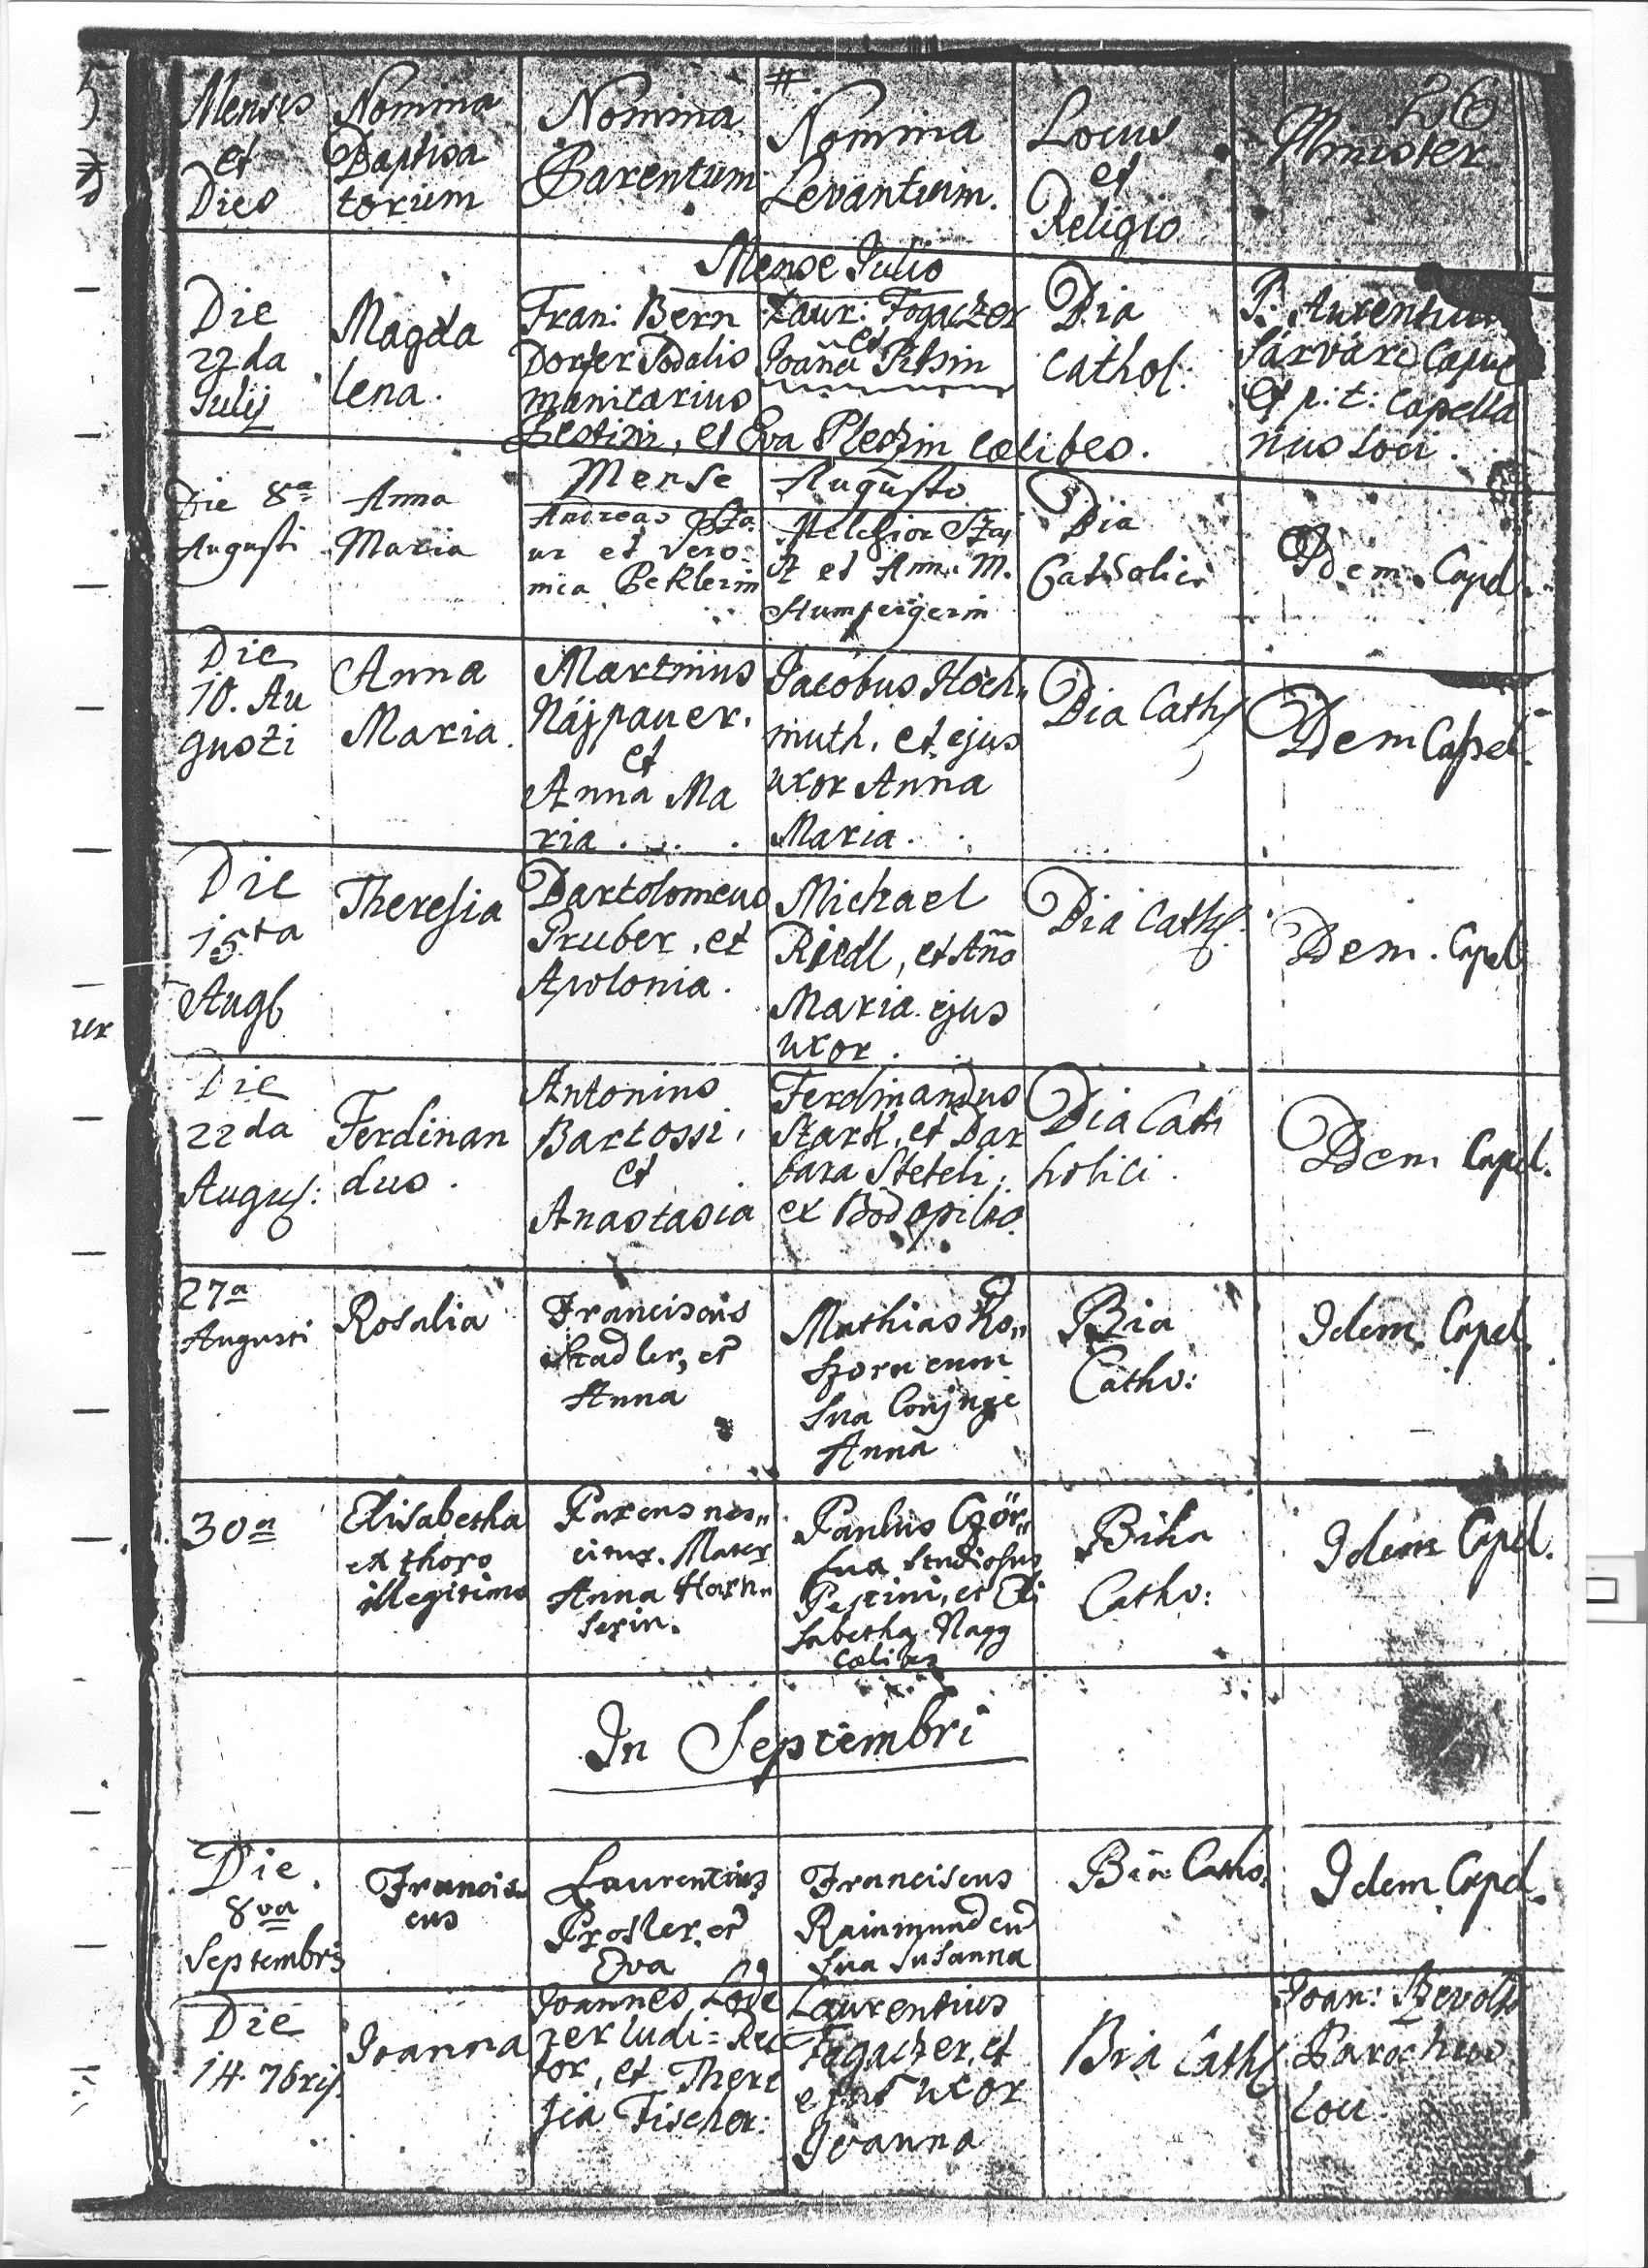 26
Mensis
et
Dies
Nomina
Baptisa
torum
Nomina
Parentum
#
Nomina
Levantium.
Locus
et
Religio
Minister
Mense Julio
Die
22da
Julij
Magda
lena.
Fran: Bern
Dorfer Sodalis
Laur: Fogaczer
et
Joaña
Bia
Cathol:
P:
Sárvári Capuc
et p: t: Capella
nus Loci.
Pestini, et Eva Pleszin cœlibes.
Mense Augusto
Die 8a
Augusti
Anna
Maria
Andreas
ur et Vero
nica Peklerin
Melchior
et Anna M.
Bia
Catholici
Idem. Capel.
Die
10. Au
gusti
Anna
Maria.
Martinus
Nájpauer.
et
Anna Ma
ria.
Jacobus Hoch„
muth, et ejus
uxor Anna
Maria.
Bia Cath
Idem Capel.
Die
15ta
Aug
Theresia
Bartolomeus
Pruber, et
Apolonia.
Michael
Riedl, et Aña
Maria ejus
uxor.
Bia Cath.
Idem. Capel
Die
22da
Augus:
Ferdinan
dus.
Antonius
Bartossi,
et
Anastasia
Ferdinandus
Stark, et Bar
bara Steteli,
ex
Bia Cath
holici.
Idem Capel.
27a
Augusti
Rosalia
Franciscus
Stadler, et
Anna
Mathias Ko„
szoru cum
sua Conjuge
Anna
Bia
Catho:
Idem. Capel.
30a
Elisabetha
ex thoro
illegitimo
Parens nes„
citur. Mater
Anna Horn„
serin.
Paulus Czör„
studiosus
Pestini, et Eli
sabetha Nagy
Cœlibes
Catho:
Idem Capel.
In Septembri
Die
8va
Septembris
Francis
cus
Laurentius
Prosler, et
Eva
Franciscus
Raimund cum
sua Susanna
Bia Catho.
Idem Capel.
Die
14. 7bris
Joanna
Joannes
zer ludi=Rec
tor, et There
sia Fischer:
Laurentius
Fogaczer, et
ejus uxor
Joanna
Bia Cath
Joan:
Parochus
Loci.
ur